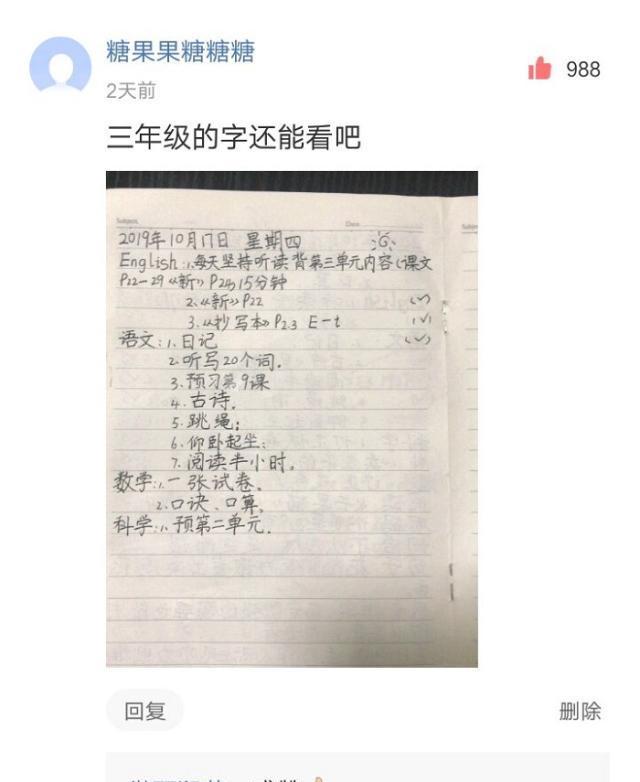 糖果果糖糖糖
988
2天前
三年级的字还能看吧
Subject
Date
2019年10月17日 星期四
English:1.每天坚持听读背第三单元内容(课文
P22-29《新》P24)15分钟
2.《新》P22 (√)
3.《抄写本》P2.3 E-t (√)
语文:1.日记 (√)
2.听写20个词.
3.预习第9课
4.古诗.
5.跳绳;
6.仰卧起坐;
7.阅读半小时。
数学:1.一张试卷.
2.口诀、口算.
科学:1.预第二单元.
回复
删除